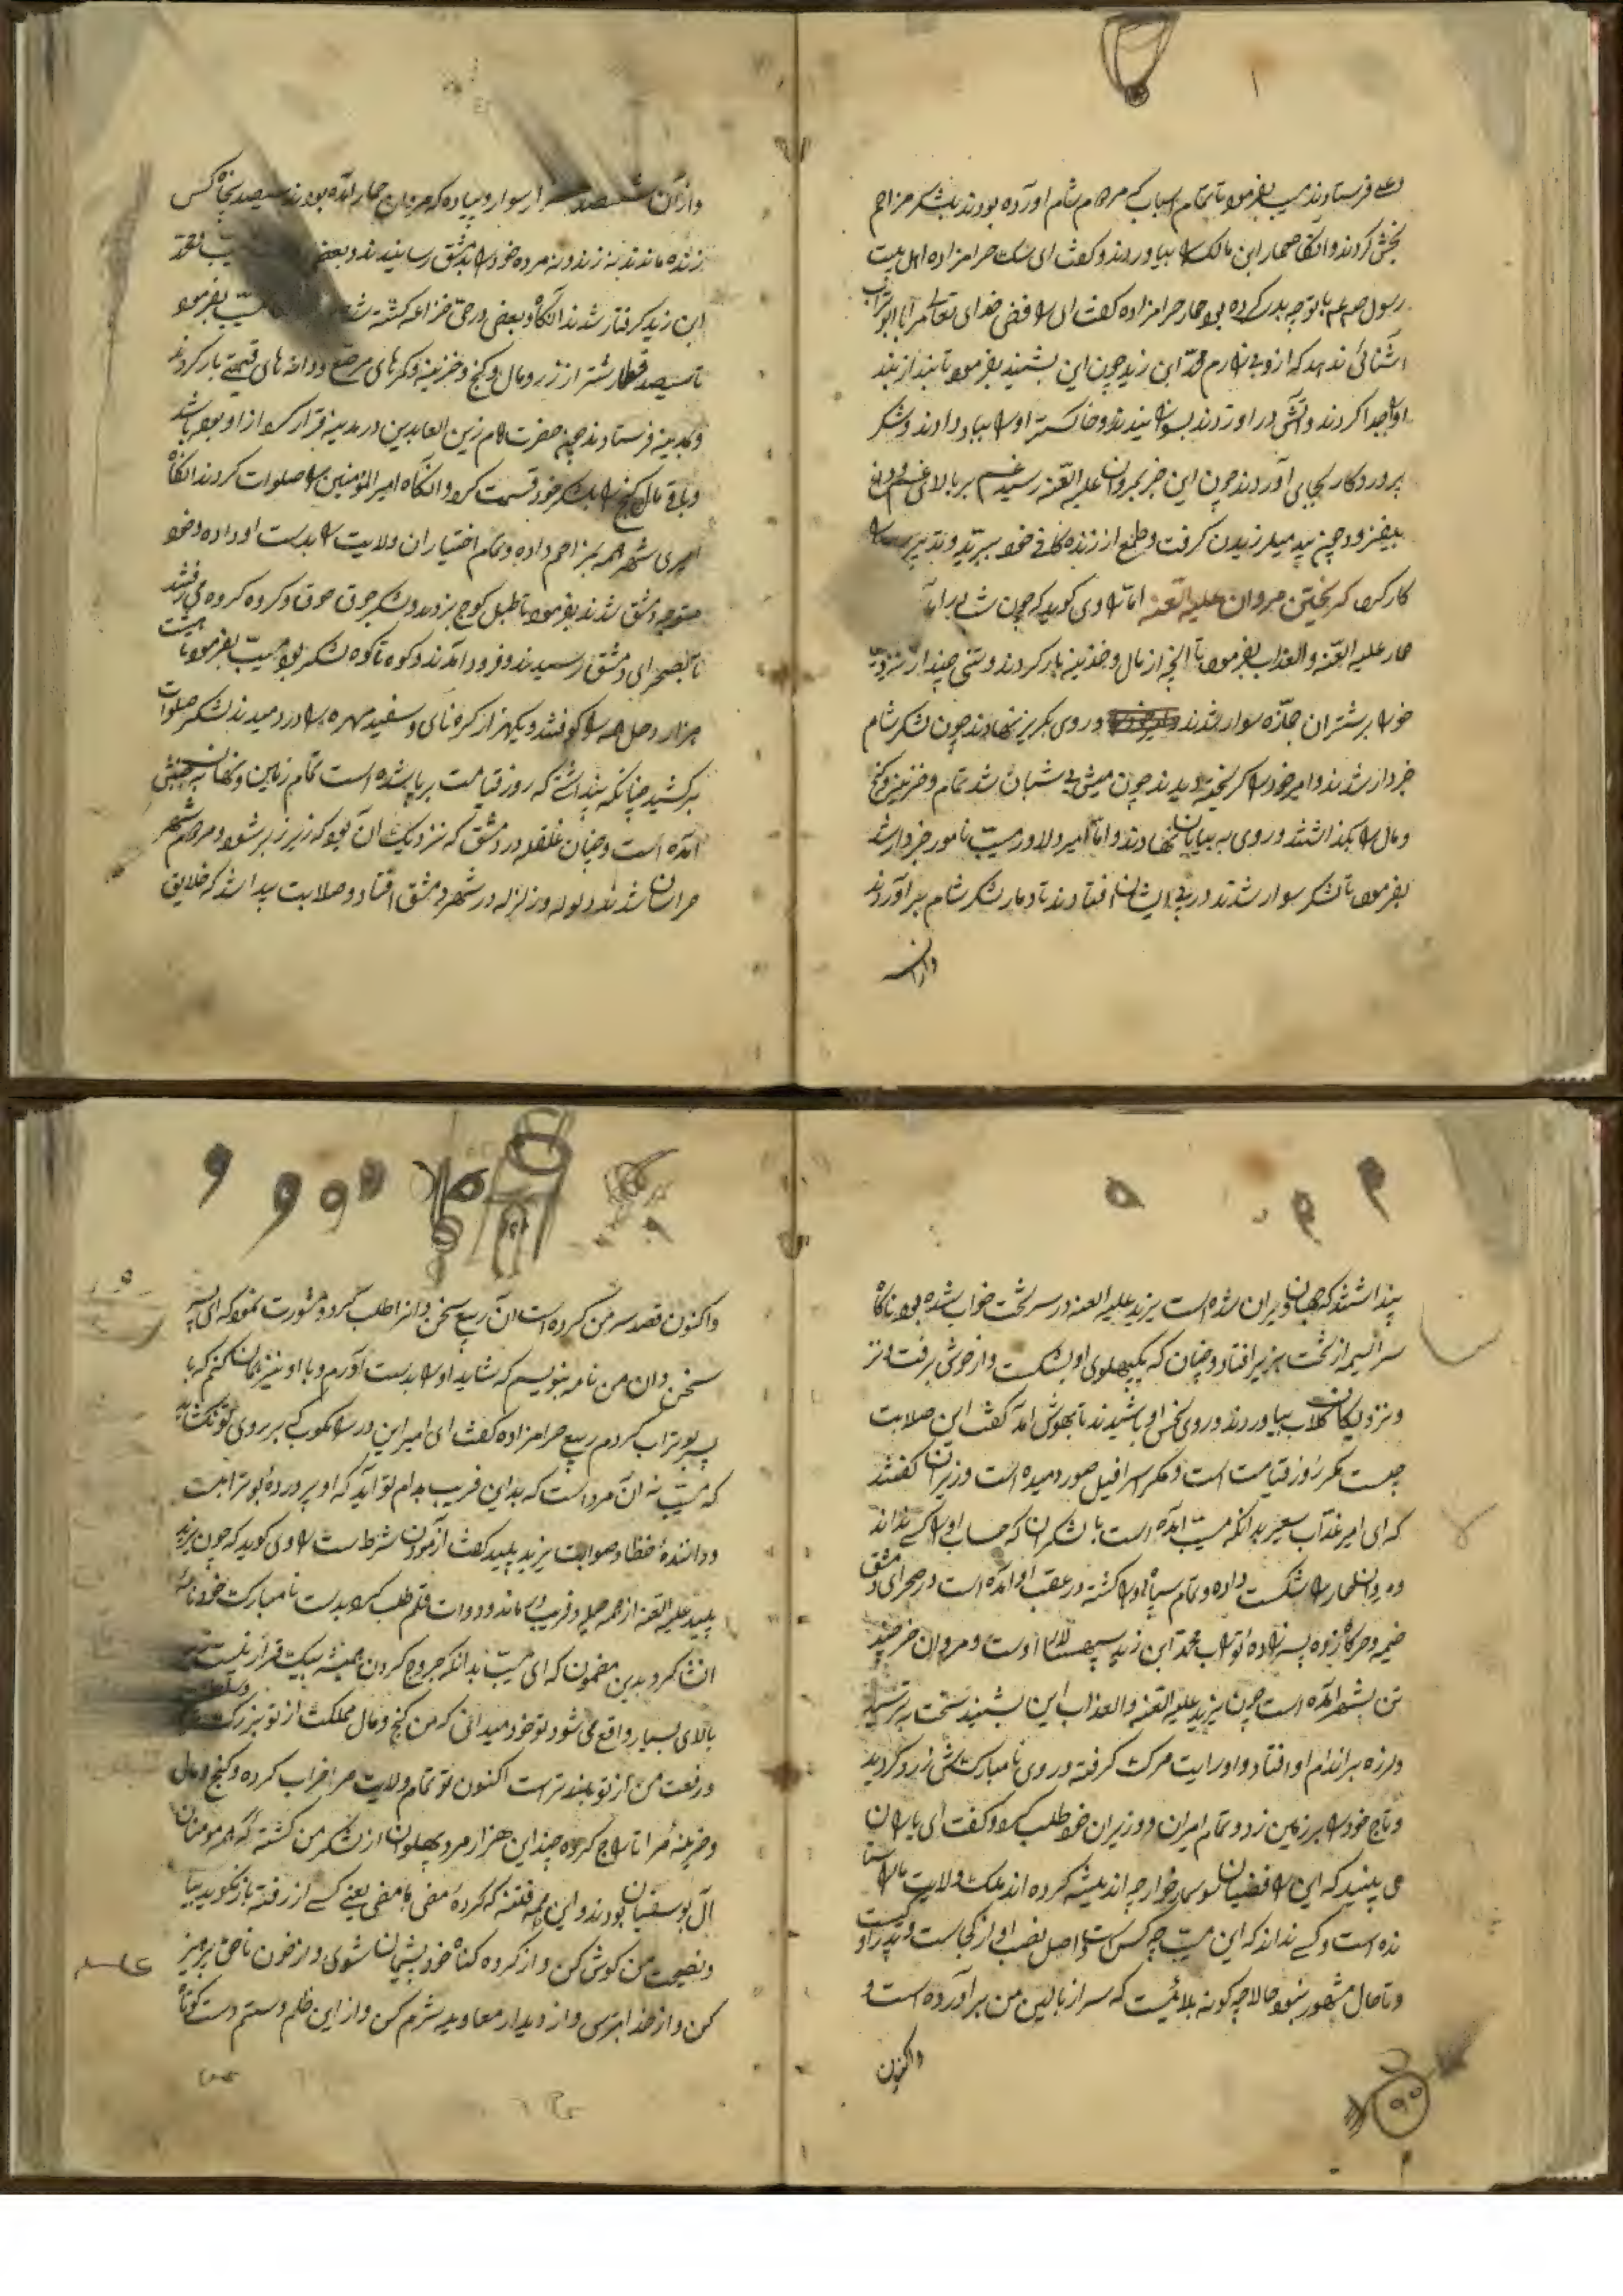 فرستادند مسیب بفرمود تا تمام اسباب که مردم شام آورده بودند بلشکر مزاحم
بخش کردند وانگاه عمار ابن مالک را بیاوردند و گفت ای سک حرامزاده اهل بیت
رسول صلعم با تو چه بد کرده بود عمار حرامزاده گفت ای رافضی خدای تعالی مرا با ابوتراب
آشنائی ندهد که از وی بیزارم محمد ابن زید چون این بشنید بفرمود تا بند از بند
او جدا کردند و آتش در او زدند بسوزانیدند و خاکستر او را بباد دادند و شکر
پروردکار بجای آوردند چون این خبر بمروان علیه اللعنه رسید غم بر بالای غم وی
بیفزود و چون بید میلرزیدن کرفت و طمع از زنده کانی خود ببرید و تدبیر
کار کرد کریختن مروان علیه اللعنه اما راوی کوید که چون شب برآمد
حمار علیه اللعنه والعذاب بفرمود تا آنچه از مال و خزینه بار کردند و تنی چند از نزدیکان
خود بر شتران جمازه سوار شدند و روی بکریز نهادند چون لشکر شام
خبردار شدند و امیر خود را کریخته دیدند چون میش بی شبان شد تمام و خزینه و کنج
و مال را بکذاشتند و روی به بیابان نهادند و اما امیر دلاور مسیب نامور خبردار شد
بفرمود تا لشکر سوار شدند در پی ایشان افتادند تا دمار لشکر شام برآوردند
واز آن
واز آن ششصد هزار سوار و پیاده که مروان حمار آمده بودند سیصد پنجاه کس
زنده ماندند نه زنده و نه مرده خود را بدمشق رسانیدند و بعضی
ابن زید کرفتار شدند آنکاه و بعضی در حی خزاعه کشته شدند مسیب بفرمود
تا سیصد قطار شتر از زر و مال و کنج و خزینه و کمرهای مرصع و دانه های قیمتی بار کردند
و بمدینه فرستادند چه حضرت امام زین العابدین در مدینه قرار
و باقی مال کنج را بلشکر خود قسمت کرد و آنکاه امیرالمؤمنین را صلوات کردند آنکاه
امیری شهر همه بمزاحم داده و تمام اختیار آن ولایت را بدست او داده و خود
متوجه دمشق شدند بفرمود تا طبل کوچ بزدند و لشکر جوق جوق و کروه کروه می رفتند
تا بصحرای دمشق رسیدند و فرود آمدند و کوه تا کوه لشکر بود مسیب بفرمود تا هشت
هزار دهل را کوفتند و یکهزار کره نای و سفید مهره را در دمیدند لشکر صلوات
برکشید چنانکه پنداشتی که روز قیامت برپا شده است تمام زمین و زمان بجنبش
آمده است و چنان غلغله در دمشق که نزدیک آن بود که زیر زبر شود و مردم شهر
هراسان شدند و ولوله و زلزله در شهر دمشق افتاد و صلابت پیدا شد که خلایق
پنداشتند که جهان ویران شده است یزید علیه اللعنه در سر تخت خواب شده بود ناکاه
سراسیمه از تخت بزیر افتاد و چنان که یکپهلوی او بشکست و از خوش برفت
و نزدیکان کلاب بیاوردند و روی نحس او پاشیدند تا بهوش آمد گفت این صلابت
چیست مکر روز قیامت است و مکر اسرافیل صور دمیده است وزیران کفتند
که ای امیر عذاب سعیر بدانکه مسیب آمده است با لشکران که حساب او را کسی نداند
و مروان الحمار را شکست داده و تمام سپاه او را کشته در عقب او آمده است در صحرای دمشق
خیمه و خرکاه زده پسرزاده بوتراب محمد ابن زید سپهسالار اوست و مروان خر چند
تن بشهر آمده است چون یزید علیه اللعنه والعذاب این بشنید سخت بترسید
و لرزه بر اندام او افتاد و او را تب مرک کرفته و روی نامبارکش زرد کردید
و تاج خود را بر زمین زد و تمام امیران و وزیران خود طلب کرد و کفت ای یاران
می بینید که این رافضیان سوسمار خوار چه اندیشه کرده اند ملک ولایت ما را
نده است و کسی نداند که این مسیب چه کس است و اصل نصب او از کجاست و پدر او کیست
و تا حال مشهور نبود حالا چه کونه بلائیست که سر از بالین من برآورده است و
واکنون
واکنون قصد سر من کرده است آن ربیع سخن دان را طلب کرد و مشورت نمود که ای پسر
سخن دان من نامه بنویسم که شاید او را بدست آورم و با او نیز همان کنم که با
پسر بوتراب کردم ربیع حرامزاده کفت ای امیر این در را مکوب که بر روی تو نکشاید
که مسیب نه آن مرد است که بداین فریب بدام تو آید که او پرورده بوترابست
و داننده خطا و صوابت یزید پلید کفت آزمودن شرط است راوی کوید که چون یزید
پلید علیه اللعنه از همه حیله و فریب در ماند و دوات قلم طلب کرد بدست نامبارک خود نامه
انشا کرد بدین مضمون که ای مسیب بدانکه خروج کردن همیشه بیک قرار نیست
بالای بسیار واقع می شود تو خود میدانی که من کنج و مال مملکت از تو بزرکتر
و رفعت من از تو بلندتر است اکنون تو تمام ولایت مرا خراب کرده و کنج و مال
و خزینه مرا تاراج کرده چندین هزار مرد پهلوان از لشکر من کشته که همه مؤمنان
آل بوسفیان بودند و این همه فتنه که کرده مضی ما مضی یعنی کسی از رفته باز نکوید بیا
و نصیحت من کوش کن و از کرده کناه خود پشیمان شوی و از خون ناحق بپرهیز
کن و از خدا بترس و از دیدار معاویه شرم کن و از این ظلم و ستم دست کوتاه